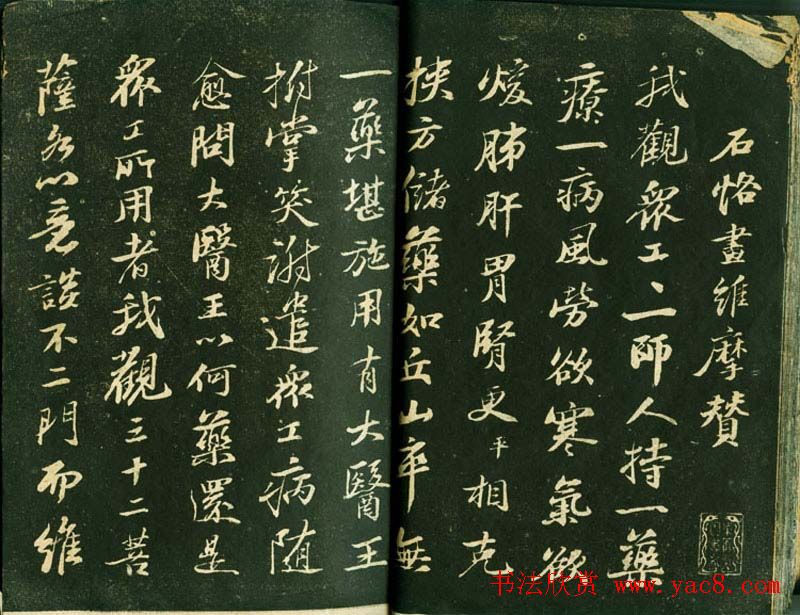 石恪畫維摩贊
我觀眾工工師人持一藥
療一病風勞欲寒氣欲
煖肺肝胃腎更平相克
挾方儲藥如丘山卒無
一藥堪施用有大醫王
拊掌笑謝遣眾工病隨
愈問大醫王以何藥還是
眾工所用者我觀三十二菩
薩各以意談不二門而維
书法欣赏 www.yac8.com